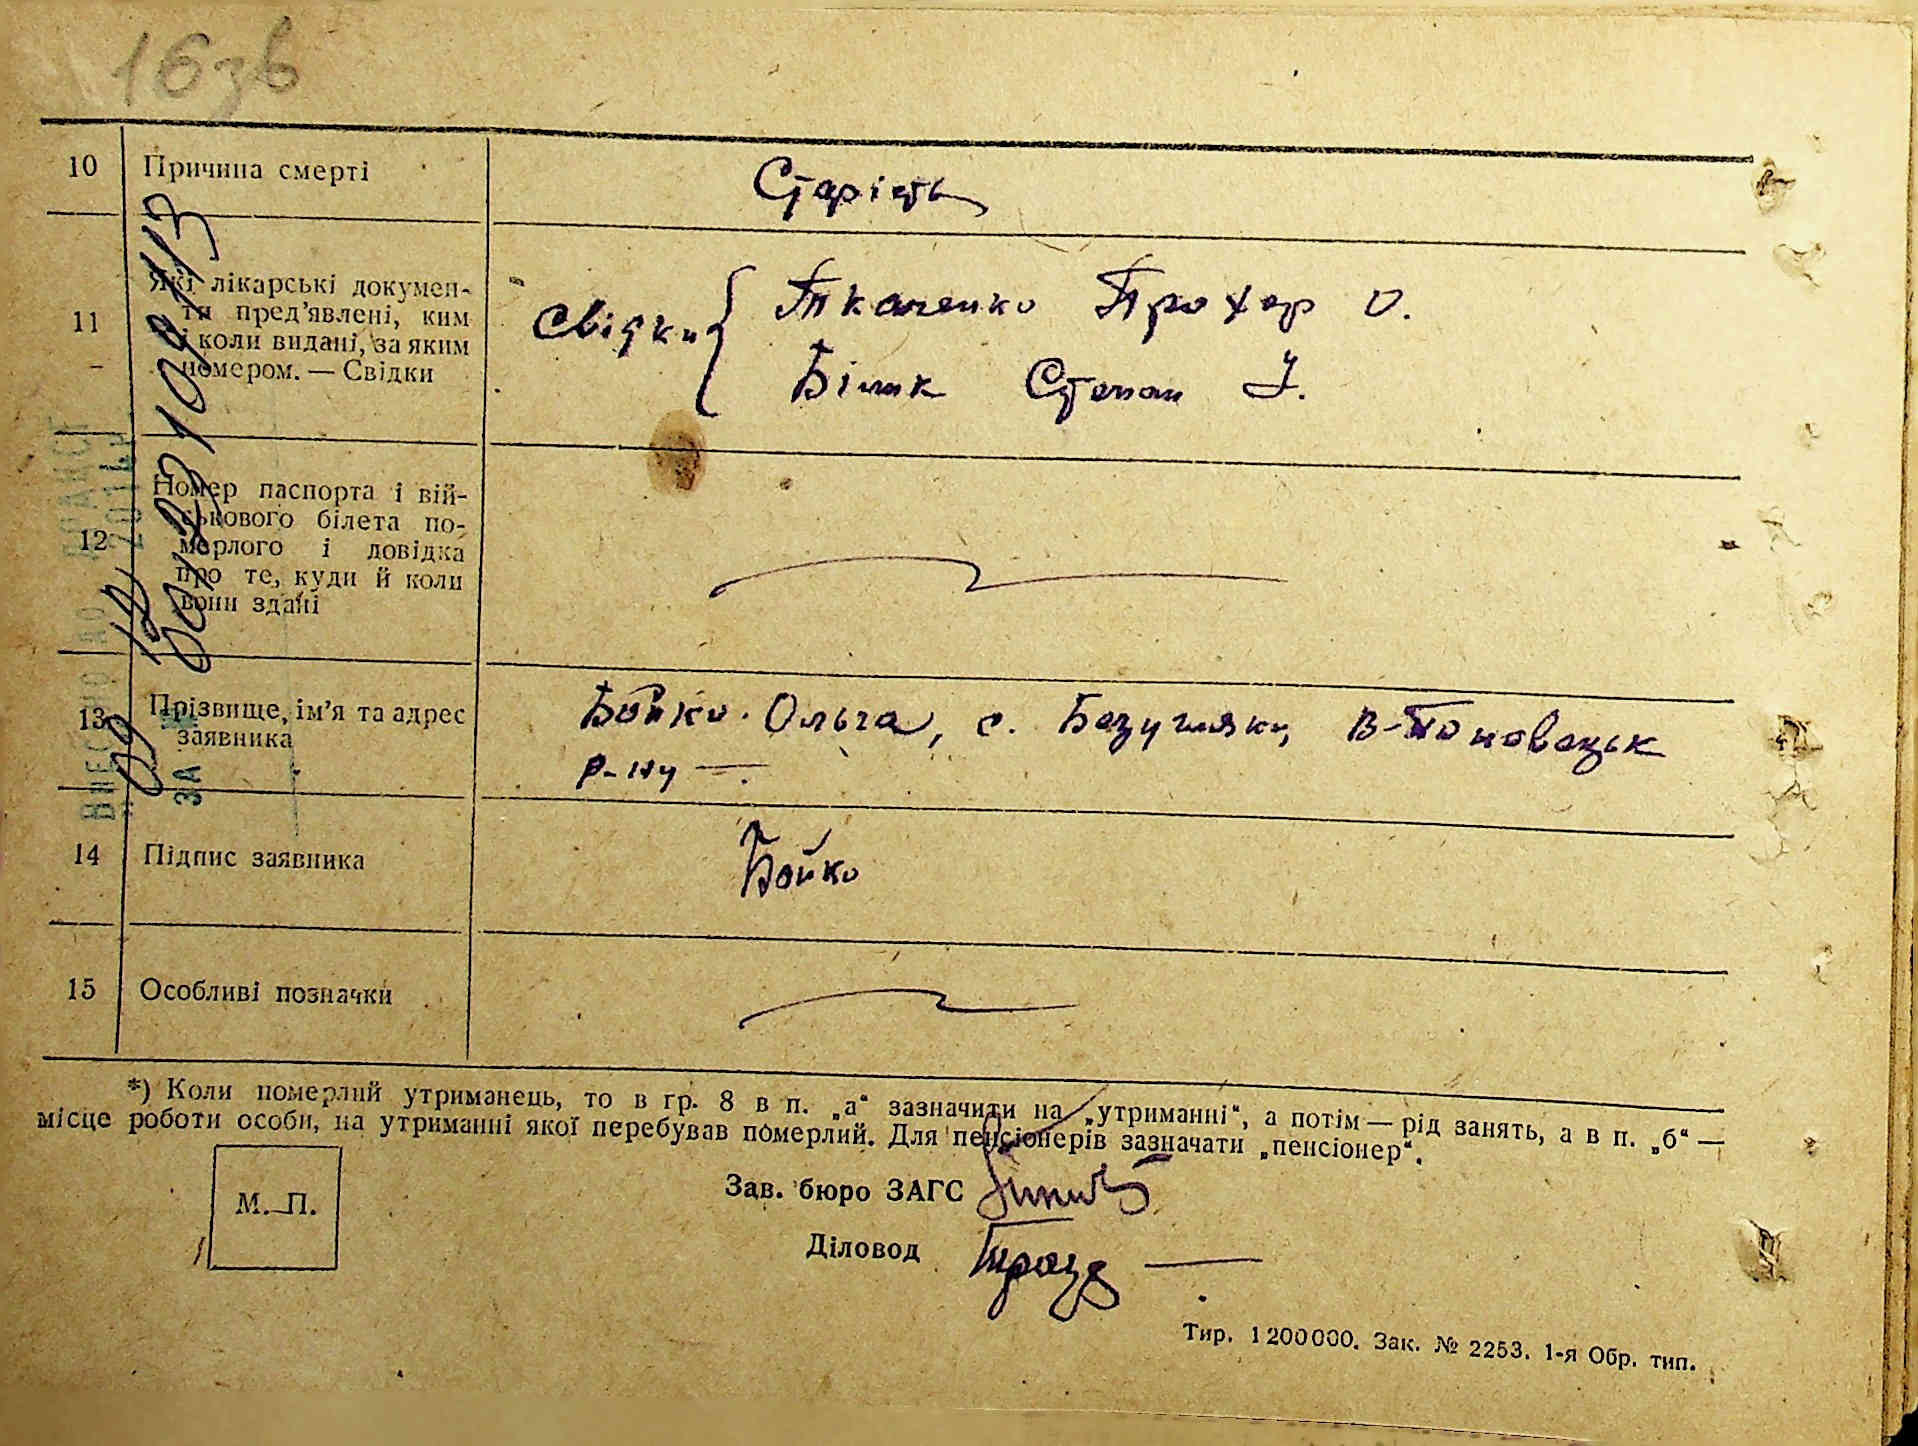 16зв
10 Причина смерті Старість
11 Які лікарські докумен-
ти пред'явлені, ким
і коли видані, за яким
номером. — Свідки
Свідки { Ткаченко Прохор О.
Білик Степан І.
12 Номер паспорта і вій-
ськового білета по-
мерлого і довідка
про те, куди й коли
вони здані
13 Прізвище, ім'я та адрес
заявника
Бойко Ольга, с. Безугляки, В-Половецьк
р-ну —
14 Підпис заявника Бойко
15 Особливі позначки
*) Коли померлий утриманець, то в гр. 8 в п. „а“ зазначити на „утриманні“, а потім — рід занять, а в п. „б“ —
місце роботи особи, на утриманні якої перебував померлий. Для пенсіонерів зазначати „пенсіонер“.
М. П.
Зав. бюро ЗАГС
Діловод
Тир. 1 200 000. Зак. № 2253. 1-я Обр. тип.